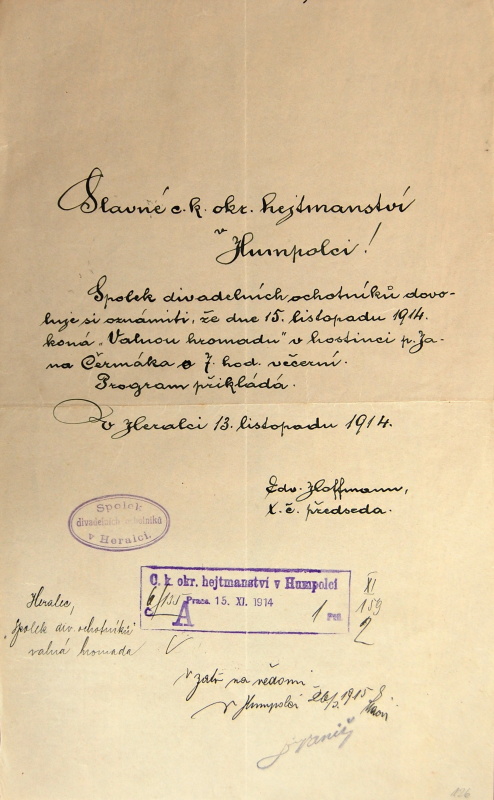 Slavné c. k. okr. hejtmanství
v
Humpolci!
Spolek divadelních ochotníků dovo-
luje si oznámiti, že dne 15. listopadu 1914.
koná „Valnou hromadu" v hostinci p. Ja-
na Čermáka o 7. hod. večerní.
Program přikládá.
V Heralci 13. listopadu 1914.
Edv. Hoffmann,
t. č. předseda.
Spolek
divadelních ochotníků
v Heralci.
C. k. okr. hejtmanství v Humpolci
Praes. 15. XI. 1914
A
1
XI
159
2
Heralec,
"Spolek div. ochotníků"
valná hromada
na vědomí
V Humpolci 1915
126